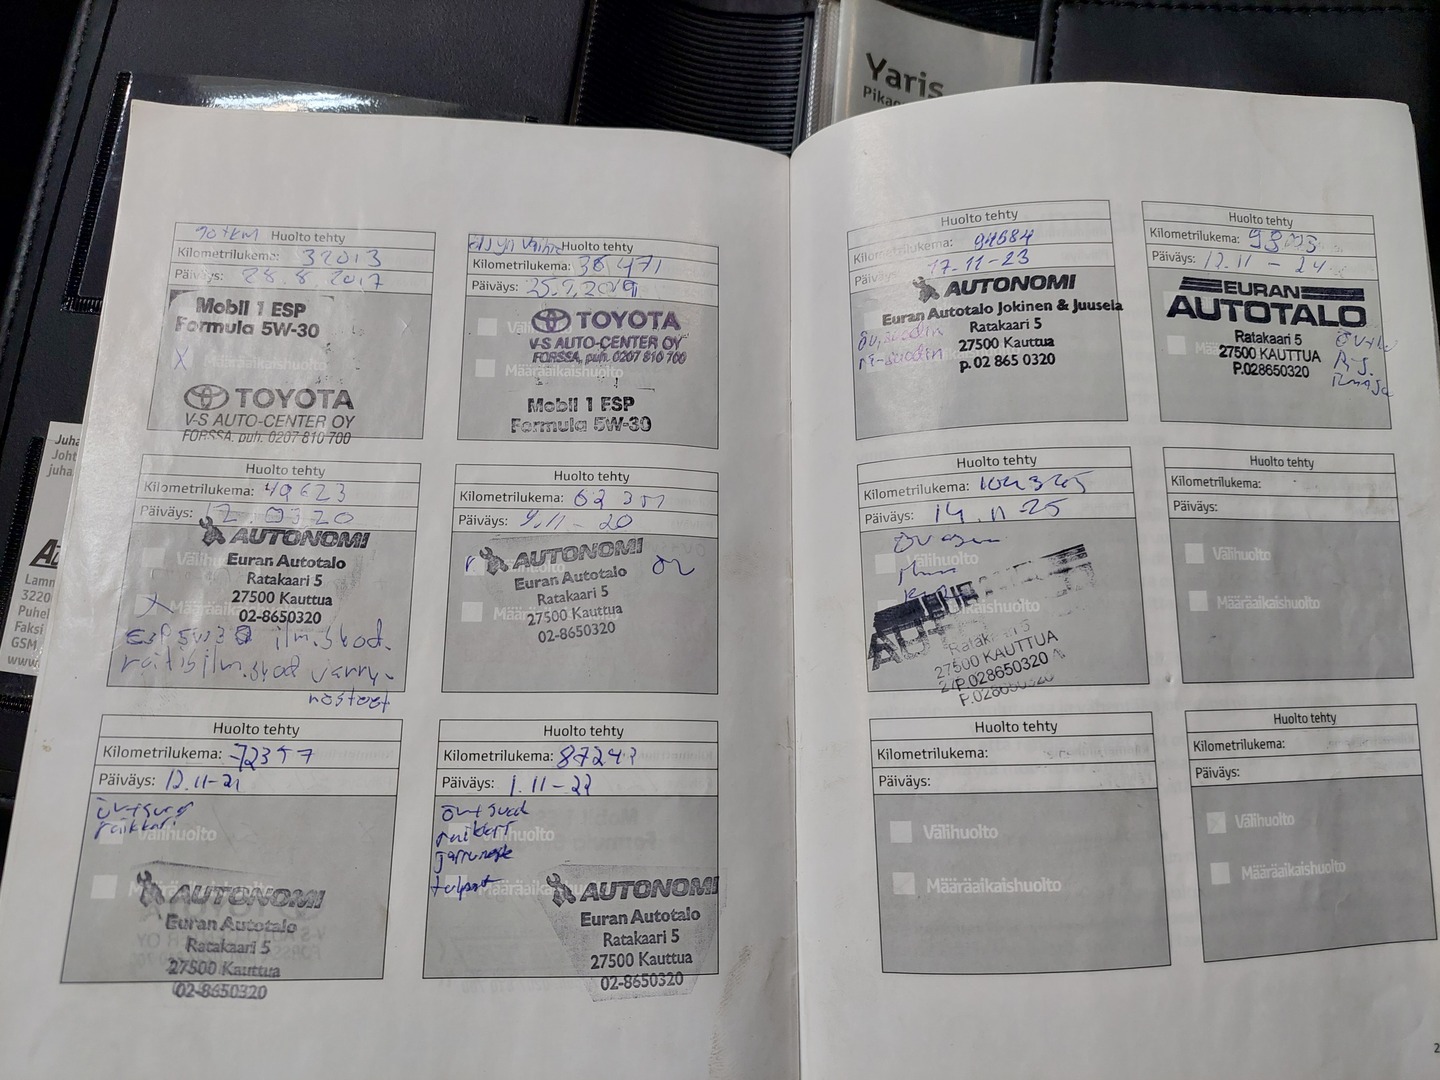 Yaris
90 tkm Huolto tehty
Kilometrilukema: 32013
Päiväys: 28.8.2017
Mobil 1 ESP
Formula 5W-30
X Määräaikaishuolto
TOYOTA
V-S AUTO-CENTER OY
FORSSA, puh. 0207 810 700
Huolto tehty
Kilometrilukema: 38 471
Päiväys:
TOYOTA
V-S AUTO-CENTER OY
FORSSA, puh. 0207 810 700
Määräaikaishuolto
Mobil 1 ESP
Formula 5W-30
Huolto tehty
Kilometrilukema: 49623
Päiväys:
AUTONOMI
Euran Autotalo
Ratakaari 5
27500 Kauttua
02-8650320
X
ESP 5W30 ilm.suod.
raitisilm.suod jarru-
nesteet
Huolto tehty
Kilometrilukema:
Päiväys: 9.11-20
AUTONOMI
Euran Autotalo
Ratakaari 5
27500 Kauttua
02-8650320
Huolto tehty
Kilometrilukema: 72397
Päiväys: 12.11-21
öv+suod
raikkari
Välihuolto
Määräaikaishuolto
AUTONOMI
Euran Autotalo
Ratakaari 5
27500 Kauttua
02-8650320
Huolto tehty
Kilometrilukema: 87243
Päiväys: 1.11-22
öv+suod
raikkari
jarruneste
tulpat
Määräaikaishuolto
AUTONOMI
Euran Autotalo
Ratakaari 5
27500 Kauttua
02-8650320
Huolto tehty
Kilometrilukema: 94684
Päiväys: 17.11-23
AUTONOMI
Euran Autotalo Jokinen & Juusela
Ratakaari 5
27500 Kauttua
p. 02 865 0320
Huolto tehty
Kilometrilukema:
Päiväys: 12.11-24
EURAN
AUTOTALO
Ratakaari 5
27500 KAUTTUA
P.028650320
Huolto tehty
Kilometrilukema: 104345
Päiväys: 14.11-25
Välihuolto
Ratakaari 5
27500 KAUTTUA
P.028650320
P.028650320
Huolto tehty
Kilometrilukema:
Päiväys:
Välihuolto
Määräaikaishuolto
Huolto tehty
Kilometrilukema:
Päiväys:
Välihuolto
Määräaikaishuolto
Huolto tehty
Kilometrilukema:
Päiväys:
Välihuolto
Määräaikaishuolto